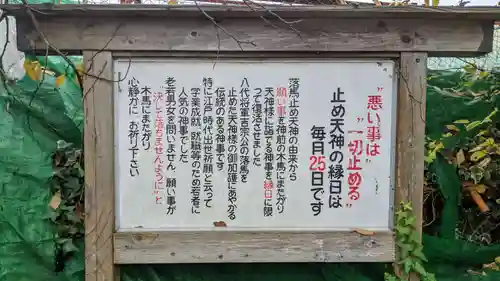 "悪い事は"
"一切止める"
止め天神の縁日は
毎月25日です
落馬止め天神の由来から
願い事を神前の木馬にまたがり
天神様に詣でる神事を縁日に限
って復活させました
八代将軍吉宗公の落馬を
止めた天神様の御加護にあやかる
伝統のある神事です
特に江戸時代出世祈願と云って
人気の神事でした
学業成就、就職等のため若者
老若男女を問いません 願い事が
"決して落ちませんように"と
木馬にまたがり
心静かに お祈り下さい